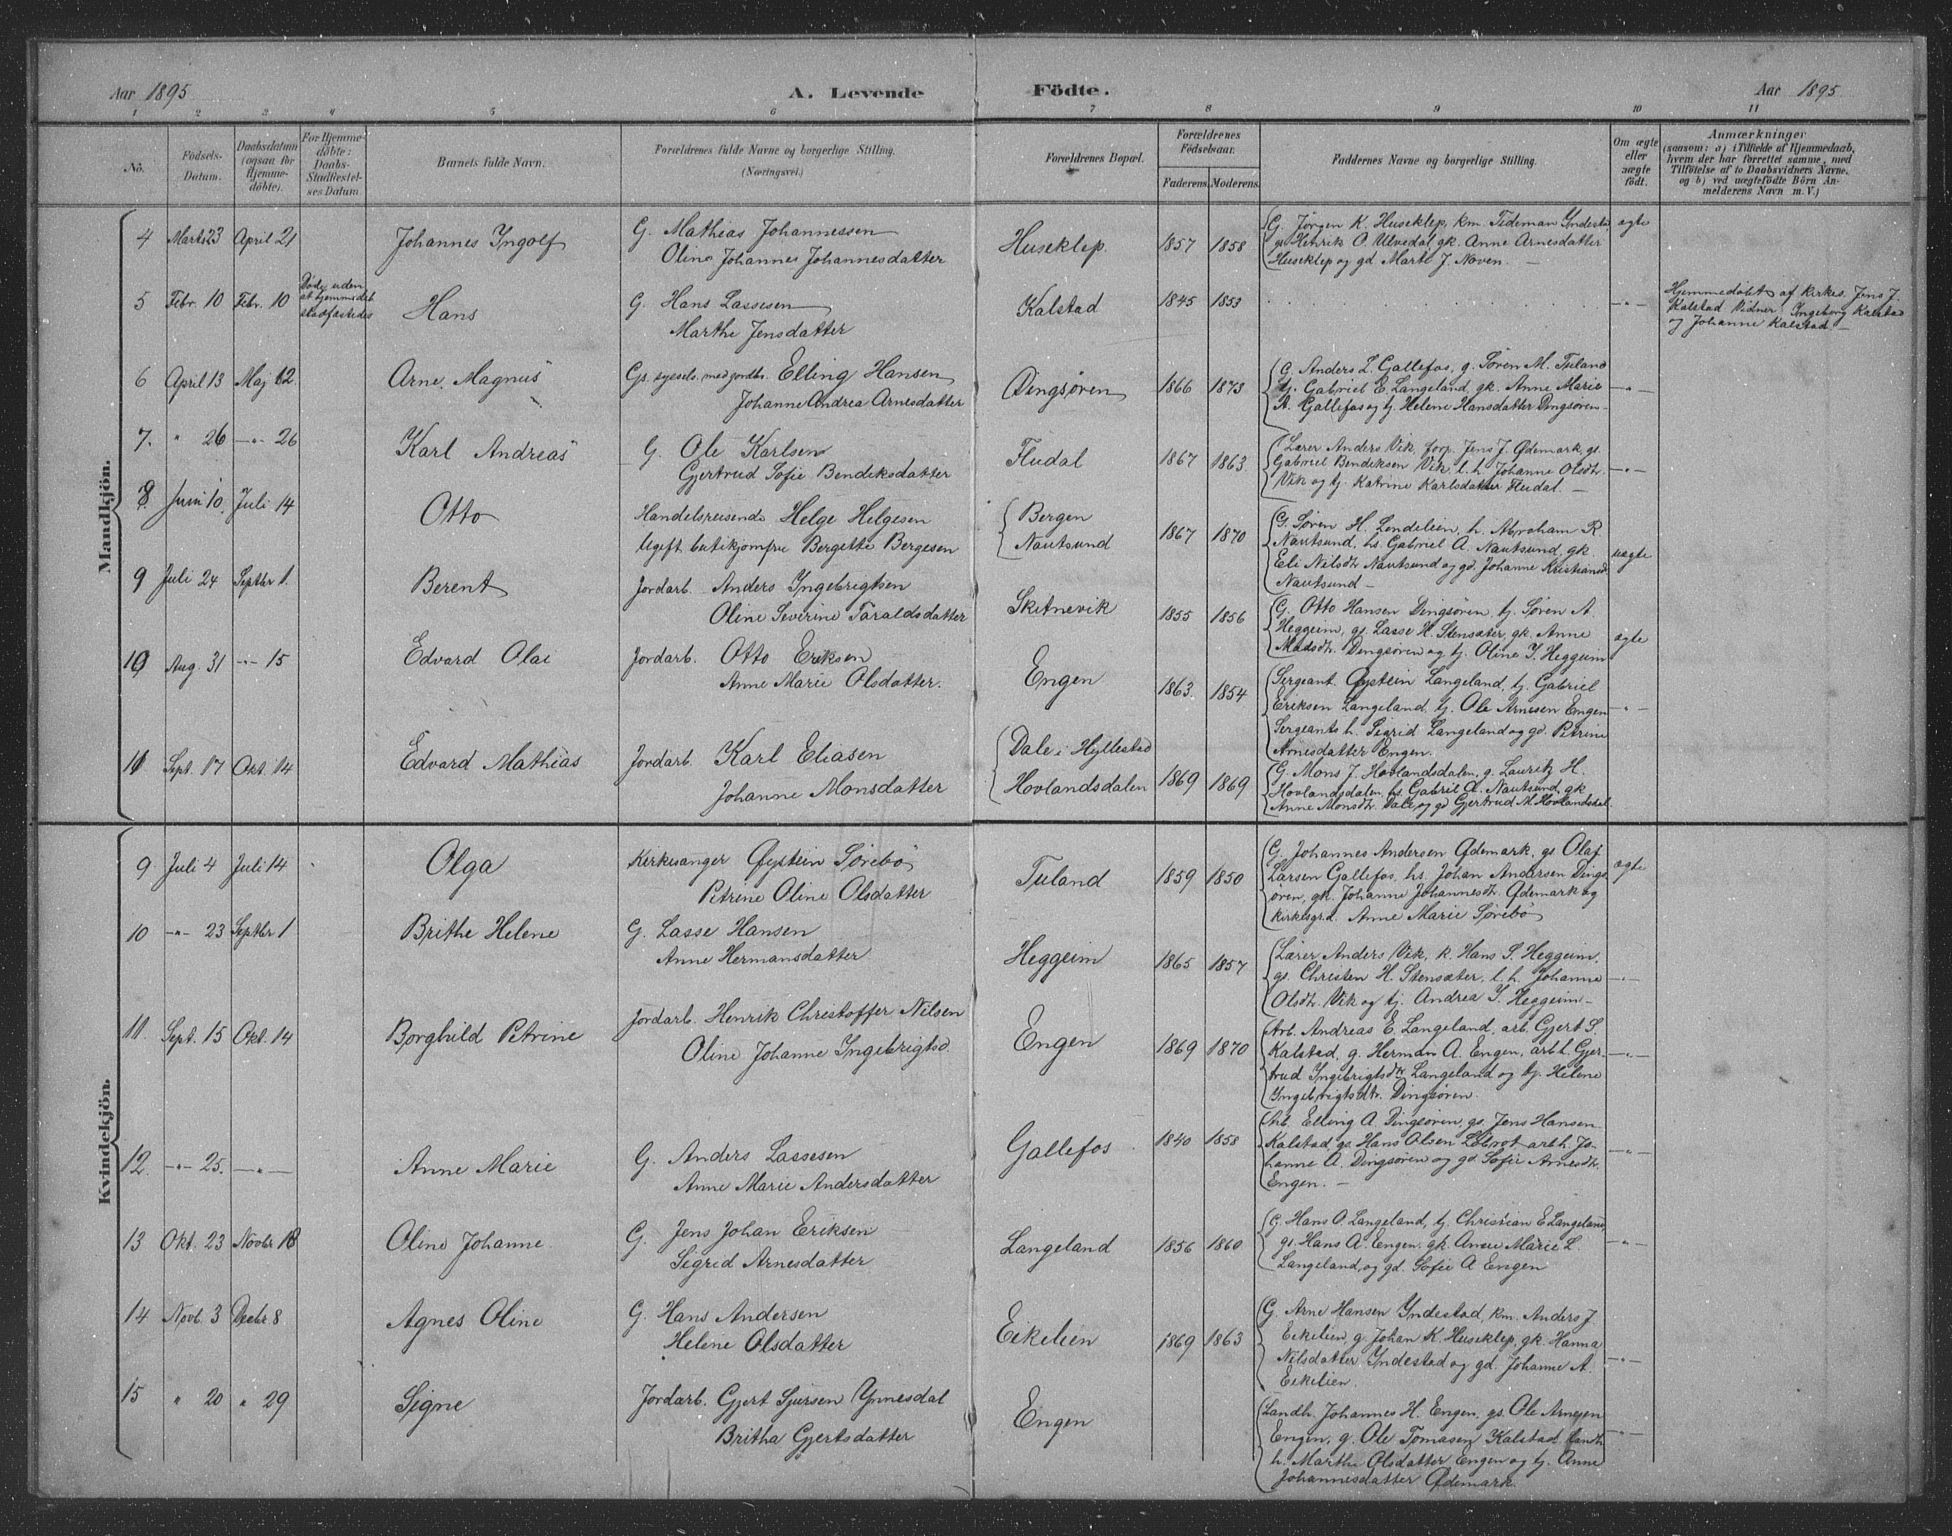 Aar 1895 A. Levende Födte. Aar 1895
1 2 3 4 5 6 7 8 9 10 11
No. Födsels-Datum. Daabsdatum (ogsaa for Hjemme-döbte). For Hjemme-döbte: Daabs-Stadfæstel-ses Datum. Barnets fulde Navn. Forældrenes fulde Navne og borgerlige Stilling. (Næringsvei.) Forældrenes Bopæl. Forældrenes Födselsaar. Faderens. Moderens. Faddernes Navne og borgerlige Stilling. Om ægte eller uægte født. Anmærkninger (saasom: a) i Tilfælde af Hjemmedaab, hvem der har forrettet samme, med Tilföielse af to Daabsvidners Navne, og b) ved uægtefödte Börn An-melderens Navn m. V.)
Mandkjön.
4 Marts 23 April 21 Johannes Ingolf G. Mathias Johannessen
Oline Johannes Johannesdatter
Huseklep 1857 1858
G. Jørgen K. Huseklep, km. Tideman Yndesta
gs. Henrik O. Ulvedal, gk. Anne Arnesdatter
Huseklep og gd. Marte J. Noven. ægte
5 Febr. 10 Febr. 10 Døde uden
at hjemmedåb
stadfæstedes
Hans G. Hans Lassesen
Marthe Jensdatter
Kalstad 1845 1853 -"-
Hjemmedøbt af Kirkes. Jens J.
Kalstad Vidner Ingeborg Kalstad
og Johanne Kalstad.
6 April 13 Maj 12. Arne Magnus Gs. syssels. med jordbr. Elling Hansen
Johanne Andrea Arnesdatter
Dingsøren 1866 1873
G. Anders L. Gallefos, g. Søren M. Tuland
tj. Gabriel E. Langeland gk. Anne Marie
A. Gallefos og tj. Helene Hansdatter Dingsøren -"-
7. " 26 -"- 26 Karl Andreas G. Ole Karlsen
Gjertrud Sofie Bendiksdatter
Fludal 1867 1863
Lærer Anders Vik, forp. Jens J. Ødemark, gs.
Gabriel Bendiksen Vik, l. h. Johanne Olsdtr.
Vik og tj. Katrine Karlsdatter Fludal. -"-
8 Juni 10. Juli 14 Otto Handelsreisende Helge Helgesen
Ugift butikjomfru Bergette Bergesen
Bergen
Nautsund 1867 1870
G. Søren H. Lendelien, h. Abraham R.
Nautsund, hs. Gabriel A. Nautsund, gk.
Eli Nilsdtr. Nautsund og gd. Johanne Kristiansd
Nautsund uægte
9 Juli 24 Septbr 1. Berent Jordarb. Anders Ingebrigtsen
Oline Severine Taraldsdatter
Skitnevik 1855 1856
G. Otto Hansen Dingsøren, tj. Søren A.
Heggeim, gs. Lasse H. Stensæter, gk. Anne
Madsdtr. Dingsøren og tj. Oline I. Heggeim ægte
10 Aug. 31 -"- 15 Edvard Olai Jordarb. Otto Eriksen
Anne Marie Olsdatter.
Engen 1863. 1854
Sergeant Øystein Langeland, tj. Gabriel
Eriksen Langeland, tj. Ole Arnesen Engen
Sergeants h. Sigrid Langeland og gd. Petrine
Arnesdatter Engen. -"-
11 Sept. 17 Okt. 14 Edvard Mathias Jordarb. Karl Eliasen
Johanne Monsdatter
Dale i Hyllestad
Hovlandsdalen 1869 1869
G. Mons J. Hovlandsdalen, g. Lauritz H.
Hovlandsdalen, hs. Gabriel A. Nautsund, gk
Anne Monsdtr. Dale og gd Gjertrud M Hovlandsdal.
Kvindekjön.
9 Juli 4 Juli 14 Olga Kirkesanger Øystein Sørebø
Petrine Oline Olsdatter
Tuland 1859 1850
G. Johannes Andersen Ødemark, gs Olaf
Larsen Gallefos, hs. Johan Andersen Dings
øren, gk. Johanne Johannesdtr. Ødemark og
kirkesgrd. Anne Marie Sørebø ægte
10 -"- 23 Septbr 1 Brithe Helene G. Lasse Hansen
Anne Hermansdatter
Heggeim 1865 1857
Lærer Anders Vik, k. Hans S. Heggeim,
gs. Christen H. Stensæter, l. h. Johanne
Olsdtr. Vik og tj. Andrea I. Heggeim -"-
11. Sept. 15 Okt. 14 Borghild Petrine Jordarb. Henrik Christoffer Nilsen
Oline Johanne Ingebrigtsd.
Engen 1869 1870
Arb. Andreas E. Langeland, arb. Gjert S.
Kalstad, g. Herman A. Engen, arb. h. Gjer-
trud Ingebrigtsdtr. Langeland og tj. Helene
Ingebrigtsdtr. Dingsøren. -"-
12. -"- 25. -"- Anne Marie G. Anders Lassesen
Anne Marie Andersdatter
Gallefos 1840 1858
Arb. Elling A. Dingsøren, gs. Jens Hansen
Kalstad, gs. Hans Olsen Løbrot arb.h. Jo-
hanne A. Dingsøren og gd. Sofie Arnesdtr.
Engen. -"-
13 Okt. 23 Novbr 18 Oline Johanne G. Jens Johan Eriksen
Sigrid Arnesdatter
Langeland 1856 1860
G. Hans O. Langeland, tj. Christian E Langeland
gs. Hans A. Engen, gk. Anne Marie L.
Langeland, og gd. Sofie A Engen -"-
14 Novb. 3 Decbr 8 Agnes Oline G. Hans Andersen
Helene Olsdatter
Eikilien 1869 1863
G. Arne Hansen Yndestad, km. Anders J.
Eikilien, g. Johan K. Huseklep, gk. Hanna
Nilsdatter Indestad og gd. Johanne A.
Eikilien. -"-
15 " 20 " 29 Signe Jordarb. Gjert Sjursen Ynnesdal
Britha Gjertsdatter
Engen
Landh. Johannes H. Engen, gs. Ole Arnesen
Engen, g. Ole Tomasen Kalstad landh
h. Marthe Olsdatter Engen og tj. Anne
Johannesdatter Ødemark. -"-